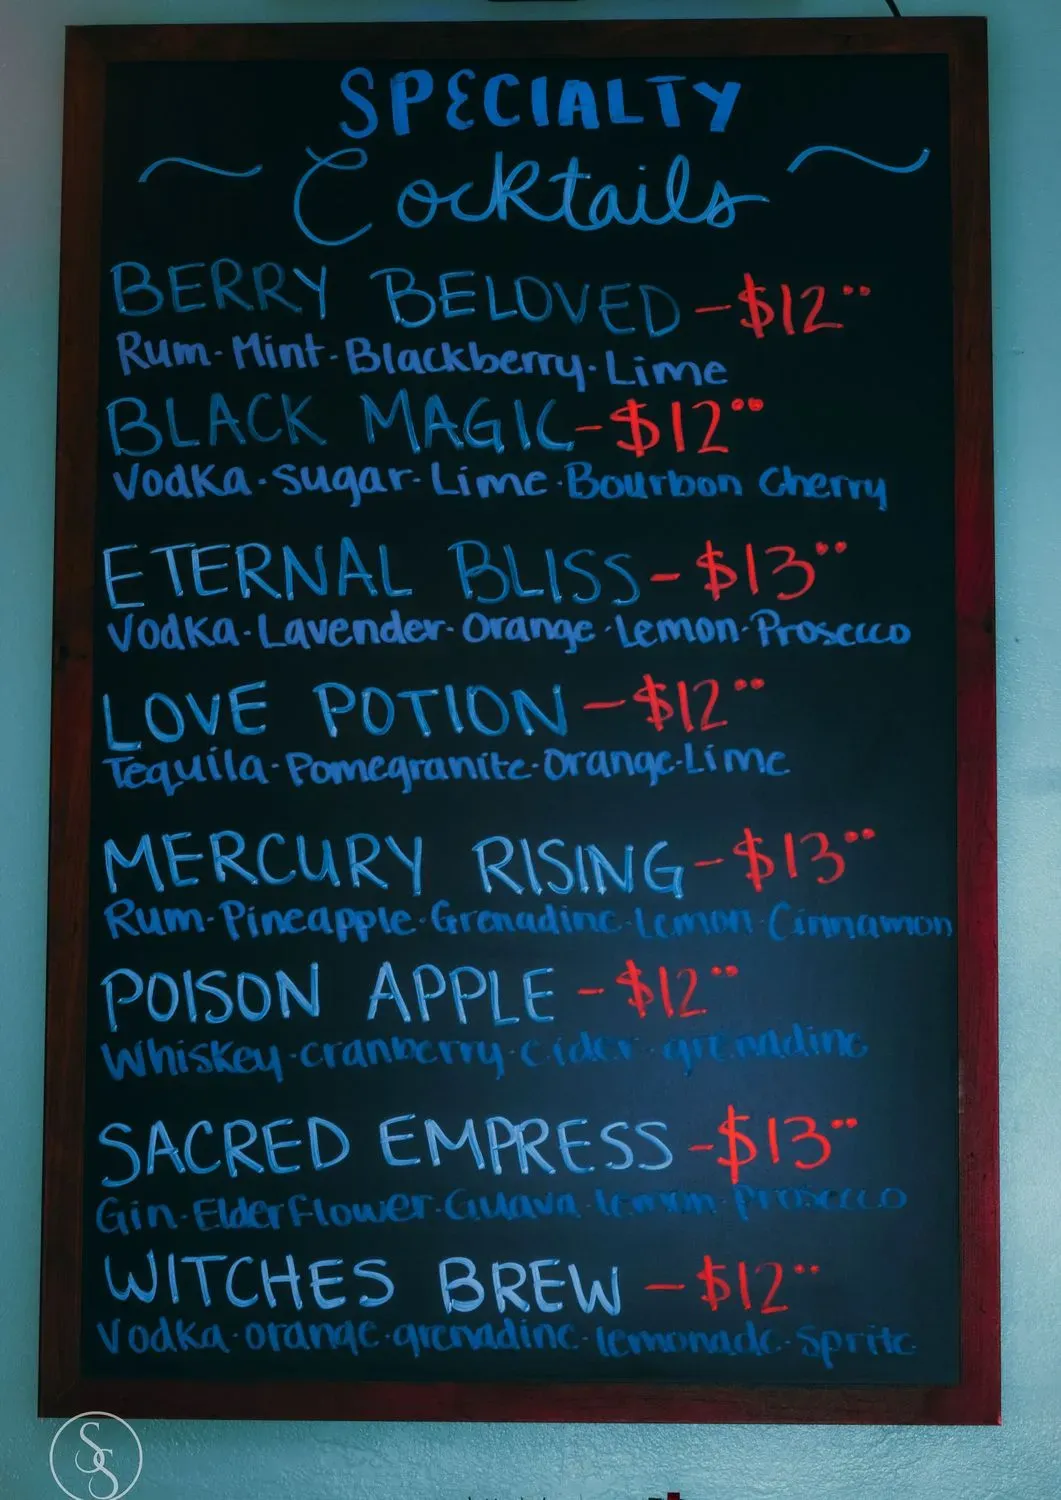 SPECIALTY
Cocktails
BERRY BELOVED - $12
Rum · Mint · Blackberry · Lime
BLACK MAGIC - $12
Vodka · Sugar · Lime · Bourbon Cherry
ETERNAL BLISS - $13
Vodka · Lavender · Orange · Lemon · Prosecco
LOVE POTION - $12
Tequila · Pomegranite · Orange · Lime
MERCURY RISING - $13
Rum · Pineapple · Grenadine · Lemon · Cinnamon
POISON APPLE - $12
Whiskey · cranberry · cider · grenadine
SACRED EMPRESS - $13
Gin · Elderflower · Guava · lemon · prosecco
WITCHES BREW - $12
Vodka · orange · grenadine · lemonade · Sprite
SS